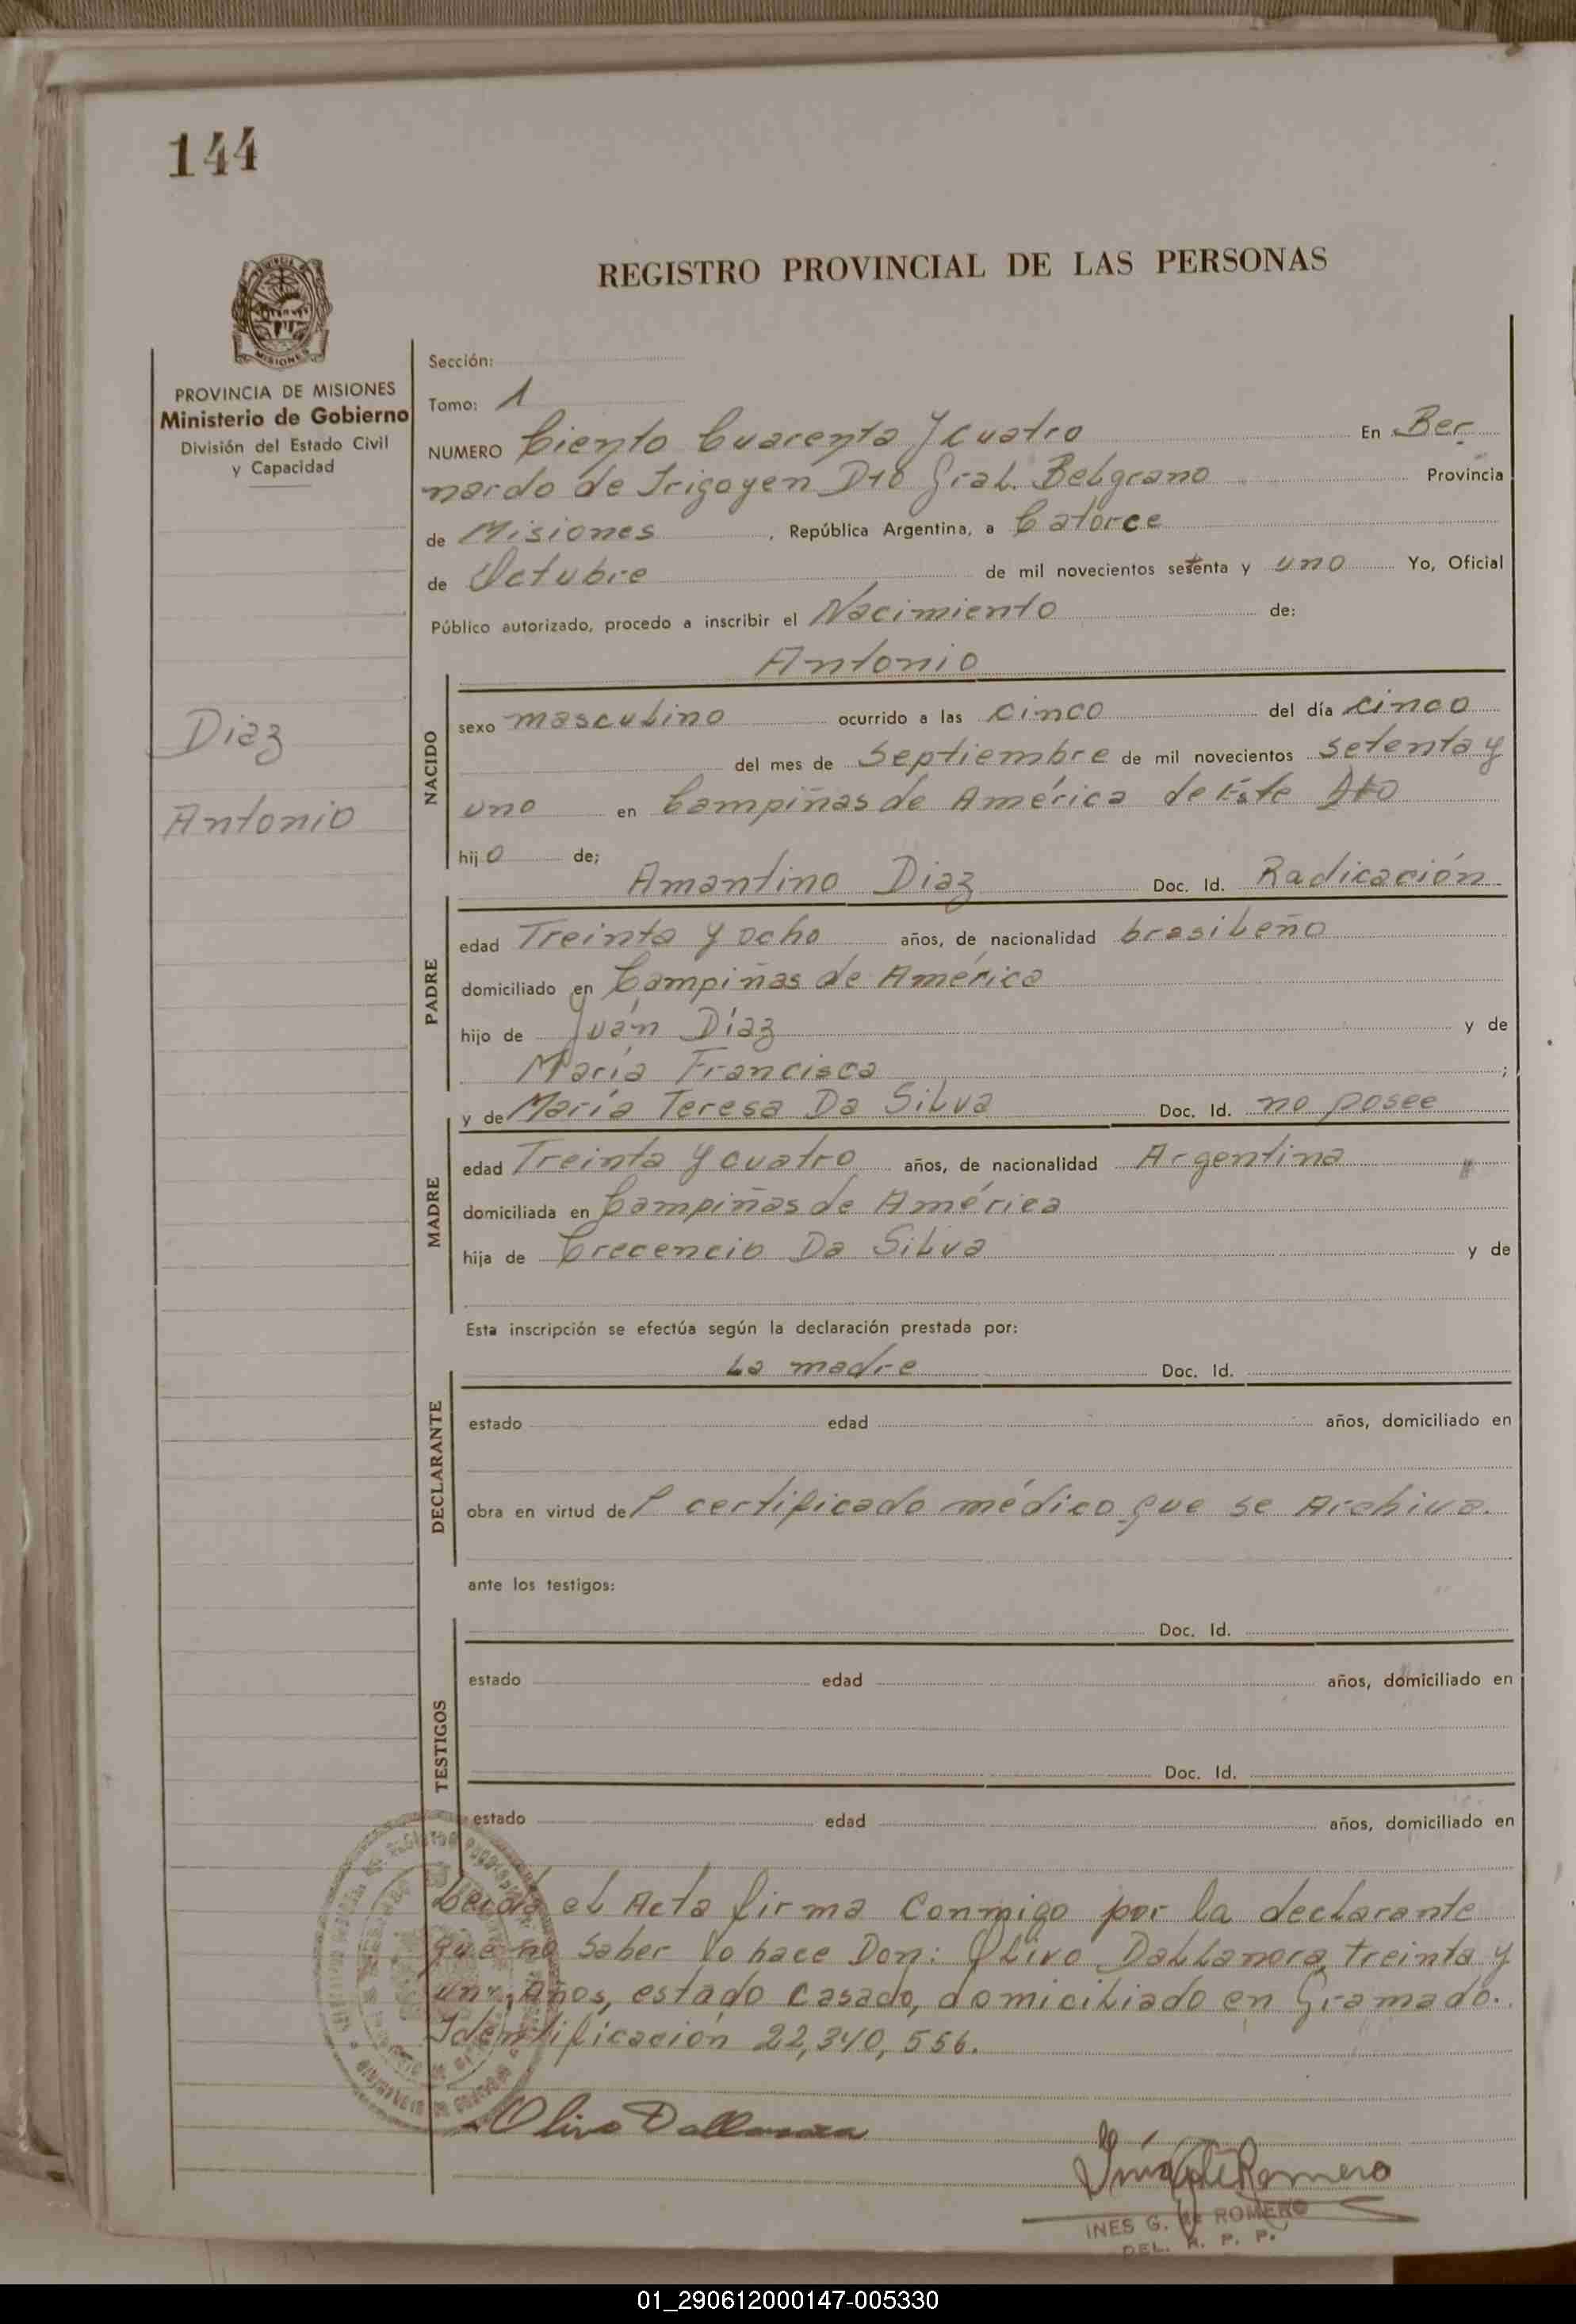 144
REGISTRO PROVINCIAL DE LAS PERSONAS
MISIONES
PROVINCIA DE MISIONES
Ministerio de Gobierno
División del Estado Civil
y Capacidad
Diaz
Antonio
Sección:
Tomo: 1
NUMERO Ciento Cuarenta y cuatro En Ber
nardo de Irigoyen Dto Gral. Belgrano Provincia
de Misiones , República Argentina, a Catorce
de Octubre de mil novecientos setenta y uno Yo, Oficial
Público autorizado, procedo a inscribir el Nacimiento de:
Antonio
NACIDO
sexo masculino ocurrido a las cinco del día cinco
del mes de Septiembre de mil novecientos setenta y
uno en Campiñas de América de Este Dto
hijo de;
Amantino Diaz Doc. Id. Radicación
PADRE
edad Treinta y ocho años, de nacionalidad brasileño
domiciliado en Campiñas de América
hijo de Juán Díaz y de
María Francisca ;
y de María Teresa Da Silva Doc. Id. no posee
MADRE
edad Treinta y cuatro años, de nacionalidad Argentina
domiciliada en Campiñas de América
hija de Crecencio Da Silva y de
Esta inscripción se efectúa según la declaración prestada por:
La madre Doc. Id.
DECLARANTE
estado edad años, domiciliado en
obra en virtud del certificado médico que se Archiva.
ante los testigos:
Doc. Id.
TESTIGOS
estado edad años, domiciliado en
Doc. Id.
estado edad años, domiciliado en
Leída el Acta firma Conmigo por la declarante
que no saber lo hace Don: Olivo Dallanora, treinta y
un Años, estado casado, domiciliado en Gramado.
Identificación 22,340,556.
Olivo Dallanora
Inés G de Romero
INES G. de ROMERO
DEL. R. P. P.
01_290612000147-005330